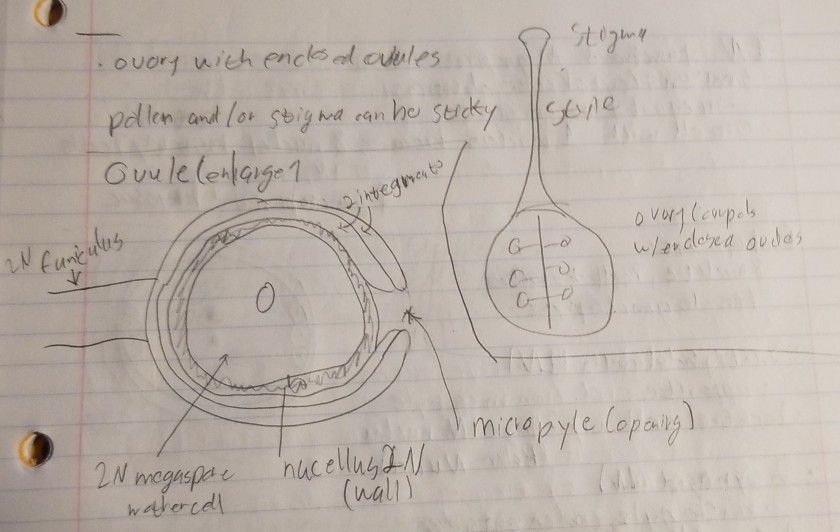 . ovary with enclosed ovules
pollen and/or stigma can be sticky
Ovule (enlarge)
2 integments
2N funiculus
2N megaspore
mothercell
nucellus 2N
(wall)
micropyle (opening)
Stigma
style
ovary (carpels
w/enclosed ovules